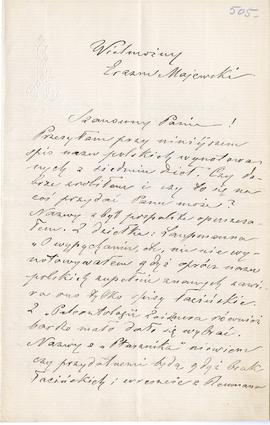 505.
Wielmożny
Erazm Majewski
Szanowny Panie!
Przesyłam przy niniejszem
spis nazw polskich wynotowa-
nych z siedmiu dzieł. Czy do-
brze zrobiłem i czy to się na
coś przydać Panu może?
Nazwy zbyt pospolite opuszcza-
łem. Z dziełka
"O wypychaniu, etc. nic nie wy-
notowywałem gdyż oprócz nazw
polskich zupełnie znanych zawie-
ra ono tylko spisy łacińskie.
Z "Paleontologii również
bardzo mało dało się wybrać.
Nazwy z "Ptasznika" niewiem
czy przydatnemi będą gdyż brak
łacińskich; wreszcie z